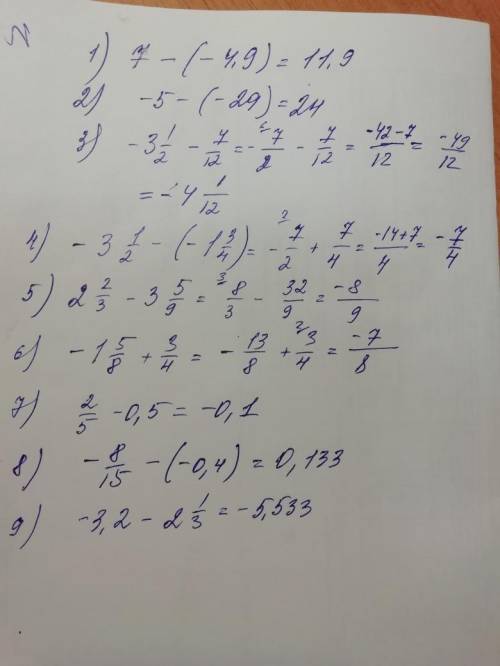 1) 7 - (- 4,9) = 11,9
2) -5 - (-29) = 24
3) -3 1/2 - 7/12 = - 7/2 - 7/12 = -42-7/12 = -49/12
= -4 1/12
4) - 3 1/2 - (-1 3/4) = - 7/2 + 7/4 = -14+7/4 = - 7/4
5) 2 2/3 - 3 5/9 = 8/3 - 32/9 = -8/9
6) -1 5/8 + 3/4 = - 13/8 + 3/4 = -7/8
7) 2/5 - 0,5 = -0,1
8) - 8/15 - (-0,4) = 0,133
9) -3,2 - 2 1/3 = -5,533